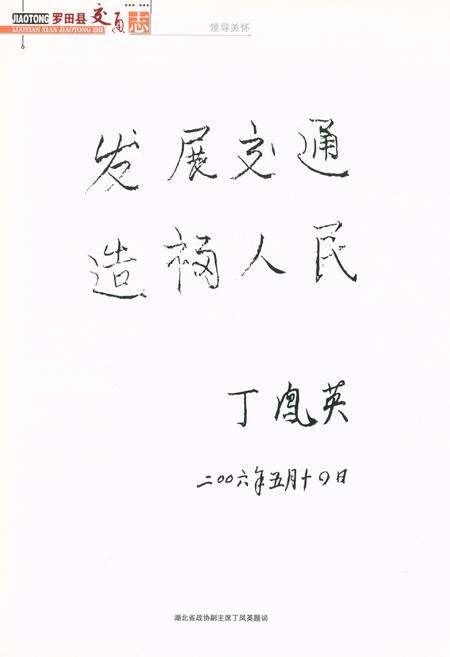 JIAOTONG 罗田县 交通志
LUOTIAN XIAN JIAOTONG ZHI
领导关怀
发展交通
造福人民
丁凤英
二〇〇六年五月十日
湖北省政协副主席丁凤英题词